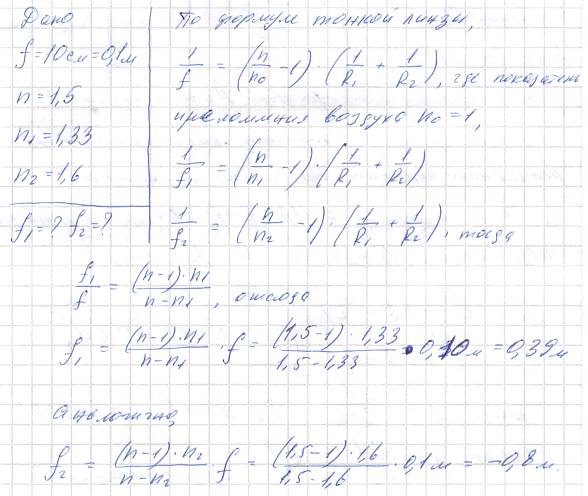 Дано
f = 10 см = 0,1 м
n = 1,5
n₁ = 1,33
n₂ = 1,6
f₁ = ? f₂ = ?
По формуле тонкой линзы,
1/f = (n/n₀ - 1) · (1/R₁ + 1/R₂), где показатель
преломления воздуха n₀ = 1,
1/f₁ = (n/n₁ - 1) · (1/R₁ + 1/R₂)
1/f₂ = (n/n₂ - 1) · (1/R₁ + 1/R₂), тогда
f₁/f = (n-1)·n₁/(n-n₁), отсюда
f₁ = (n-1)·n₁/(n-n₁) · f = (1,5-1)·1,33/(1,5-1,33) · 0,10 м = 0,39 м
Аналогично,
f₂ = (n-1)·n₂/(n-n₂) · f = (1,5-1)·1,6/(1,5-1,6) · 0,1 м = -0,8 м.